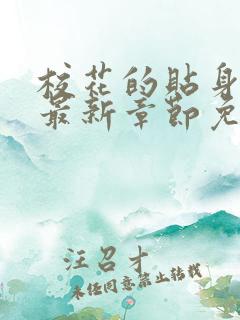 校花的贴身
最新章节免
汪召才
未经同意禁止转载